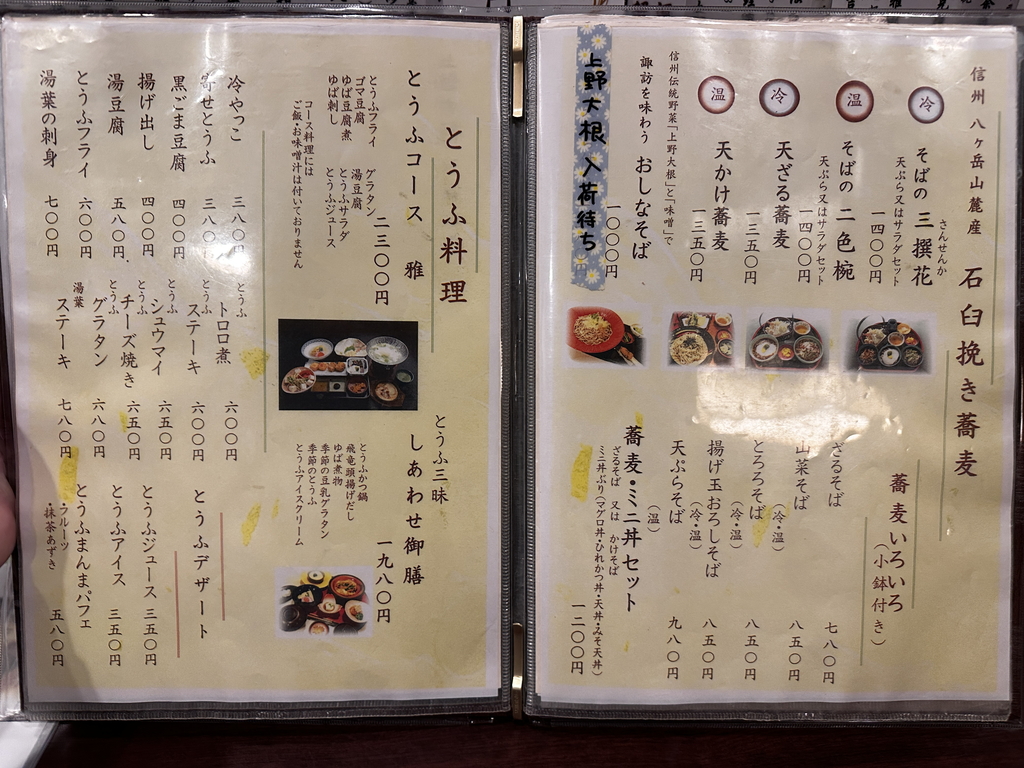 信州 八ヶ岳山麓産 石臼挽き蕎麦
冷
そばの 三撰花
さんせんか
天ぷら又はサラダセット
一四〇〇円
温
そばの 二色椀
天ぷら又はサラダセット
一四〇〇円
冷
天ざる蕎麦
一三五〇円
温
天かけ蕎麦
一三五〇円
信州伝統野菜「上野大根」と「味噌」で
諏訪を味わう おしなそば
一〇〇〇円
上野大根 入荷待ち
蕎麦いろいろ
(小鉢付き)
ざるそば 七八〇円
山菜そば (冷・温) 八五〇円
とろろそば (冷・温) 八五〇円
揚げ玉おろしそば (冷・温) 八五〇円
天ぷらそば (温) 九八〇円
蕎麦・ミニ丼セット
ざるそば 又は かけそば
ミニ丼ぶり(マグロ丼・ひれかつ丼・天丼・みそ天丼)
一二〇〇円
とうふ料理
とうふコース 雅
二三〇〇円
とうふフライ グラタン
ゴマ豆腐 湯豆腐
ゆば豆腐煮 とうふサラダ
ゆば刺し とうふジュース
コース料理には
ご飯・お味噌汁は付いておりません
とうふ三昧
しあわせ御膳
一九八〇円
とうふかつ鍋
飛竜頭揚げだし
ゆば煮物
季節の豆乳グラタン
季節のとうふ
とうふアイスクリーム
冷やっこ 三八〇円
寄せとうふ 三八〇円
黒ごま豆腐 四〇〇円
揚げ出し 四〇〇円
湯豆腐 五八〇円
とうふフライ 六〇〇円
湯葉の刺身 七〇〇円
とうふ トロロ煮 六〇〇円
とうふ ステーキ 六〇〇円
とうふ シュウマイ 六五〇円
とうふ チーズ焼き 六五〇円
とうふ グラタン 六八〇円
湯葉 ステーキ 七八〇円
とうふデザート
とうふジュース 三五〇円
とうふアイス 三五〇円
とうふまんまパフェ
・フルーツ
・抹茶あずき
五八〇円